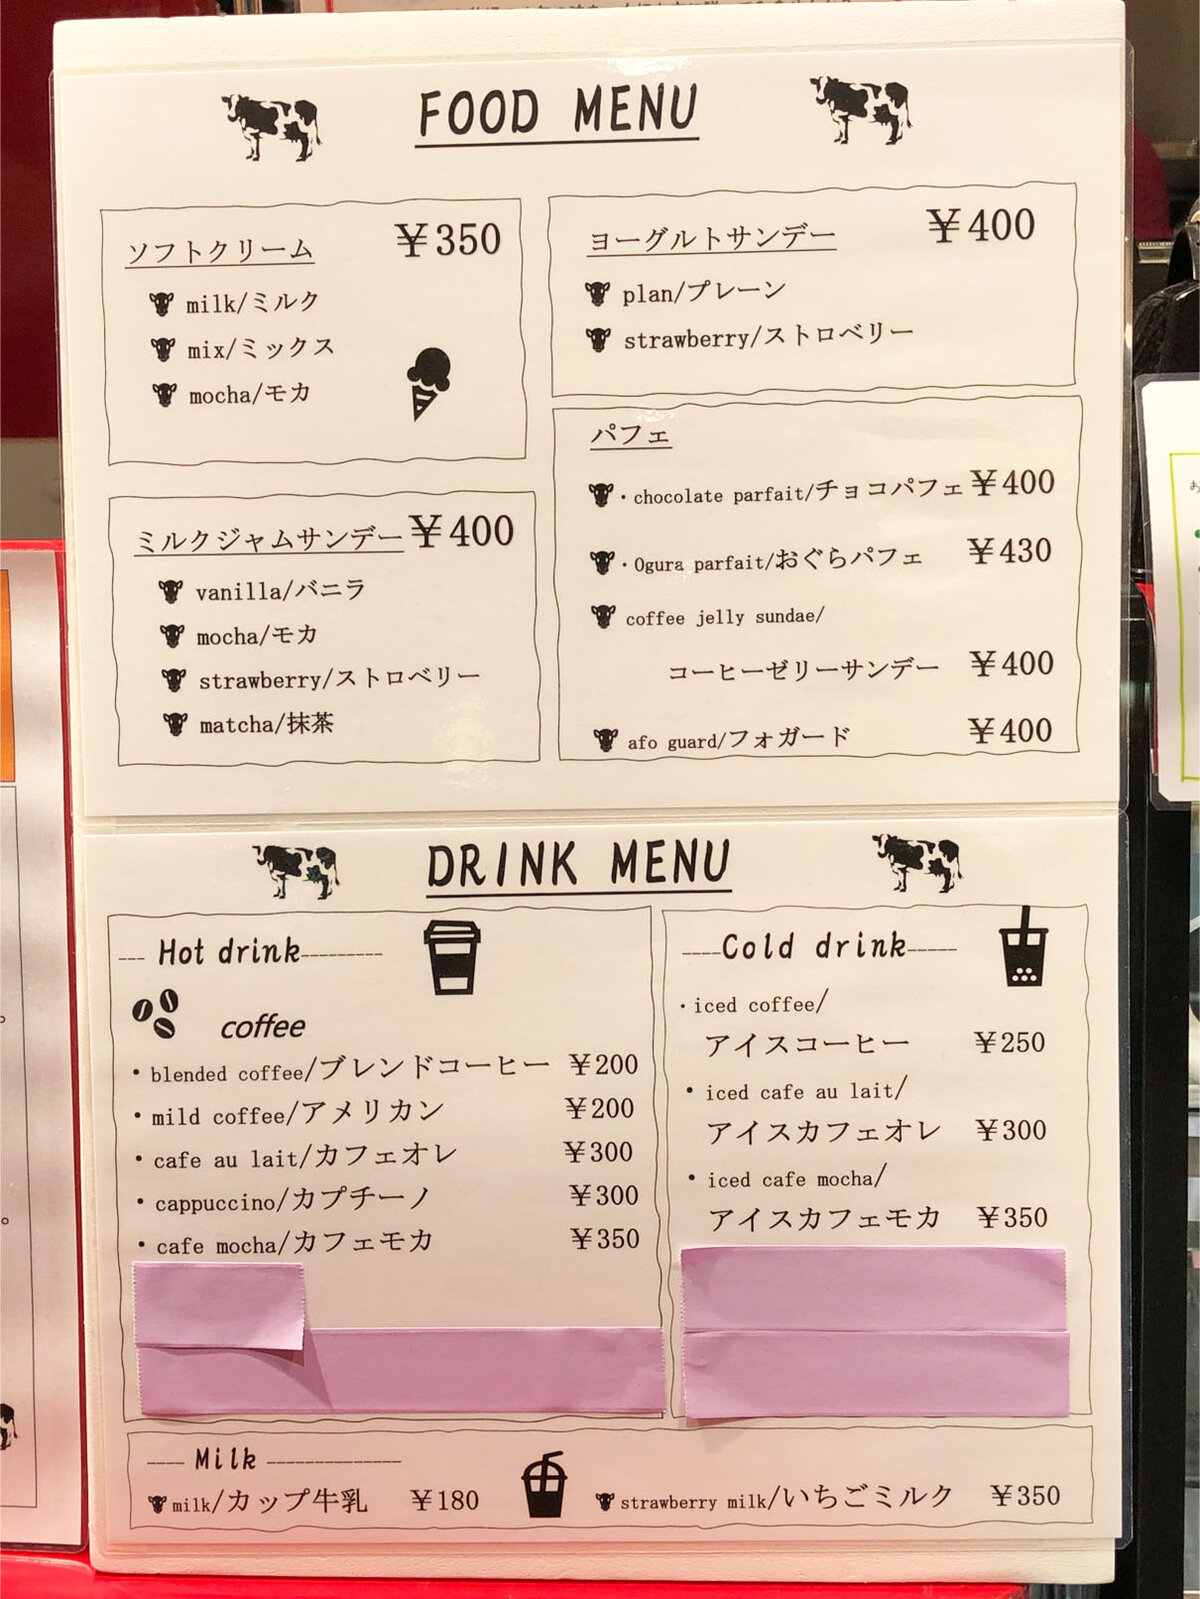 FOOD MENU
ソフトクリーム ￥350
milk/ミルク
mix/ミックス
mocha/モカ
ミルクジャムサンデー ￥400
vanilla/バニラ
mocha/モカ
strawberry/ストロベリー
matcha/抹茶
ヨーグルトサンデー ￥400
plan/プレーン
strawberry/ストロベリー
パフェ
・chocolate parfait/チョコパフェ ￥400
・Ogura parfait/おぐらパフェ ￥430
coffee jelly sundae/
コーヒーゼリーサンデー ￥400
afo guard/フォガード ￥400
DRINK MENU
Hot drink
coffee
・blended coffee/ブレンドコーヒー ￥200
・mild coffee/アメリカン ￥200
・cafe au lait/カフェオレ ￥300
・cappuccino/カプチーノ ￥300
・cafe mocha/カフェモカ ￥350
Cold drink
・iced coffee/
アイスコーヒー ￥250
・iced cafe au lait/
アイスカフェオレ ￥300
・iced cafe mocha/
アイスカフェモカ ￥350
Milk
milk/カップ牛乳 ￥180
strawberry milk/いちごミルク ￥350